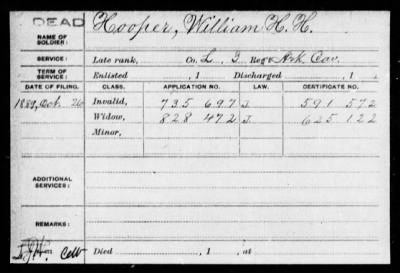 DEAD
NAME OF SOLDIER: Hooper, William H. H.
SERVICE: Late rank, Co. L, 3 Reg't Ark Cav.
TERM OF SERVICE: Enlisted , 1 Discharged , 1
DATE OF FILING. CLASS. APPLICATION NO. LAW. CERTIFICATE NO.
1889, Oct 26 Invalid, 735 697 J 591 572
Widow, 828 472 J 625 122
Minor,
ADDITIONAL SERVICES:
REMARKS:
Died , 1 , at